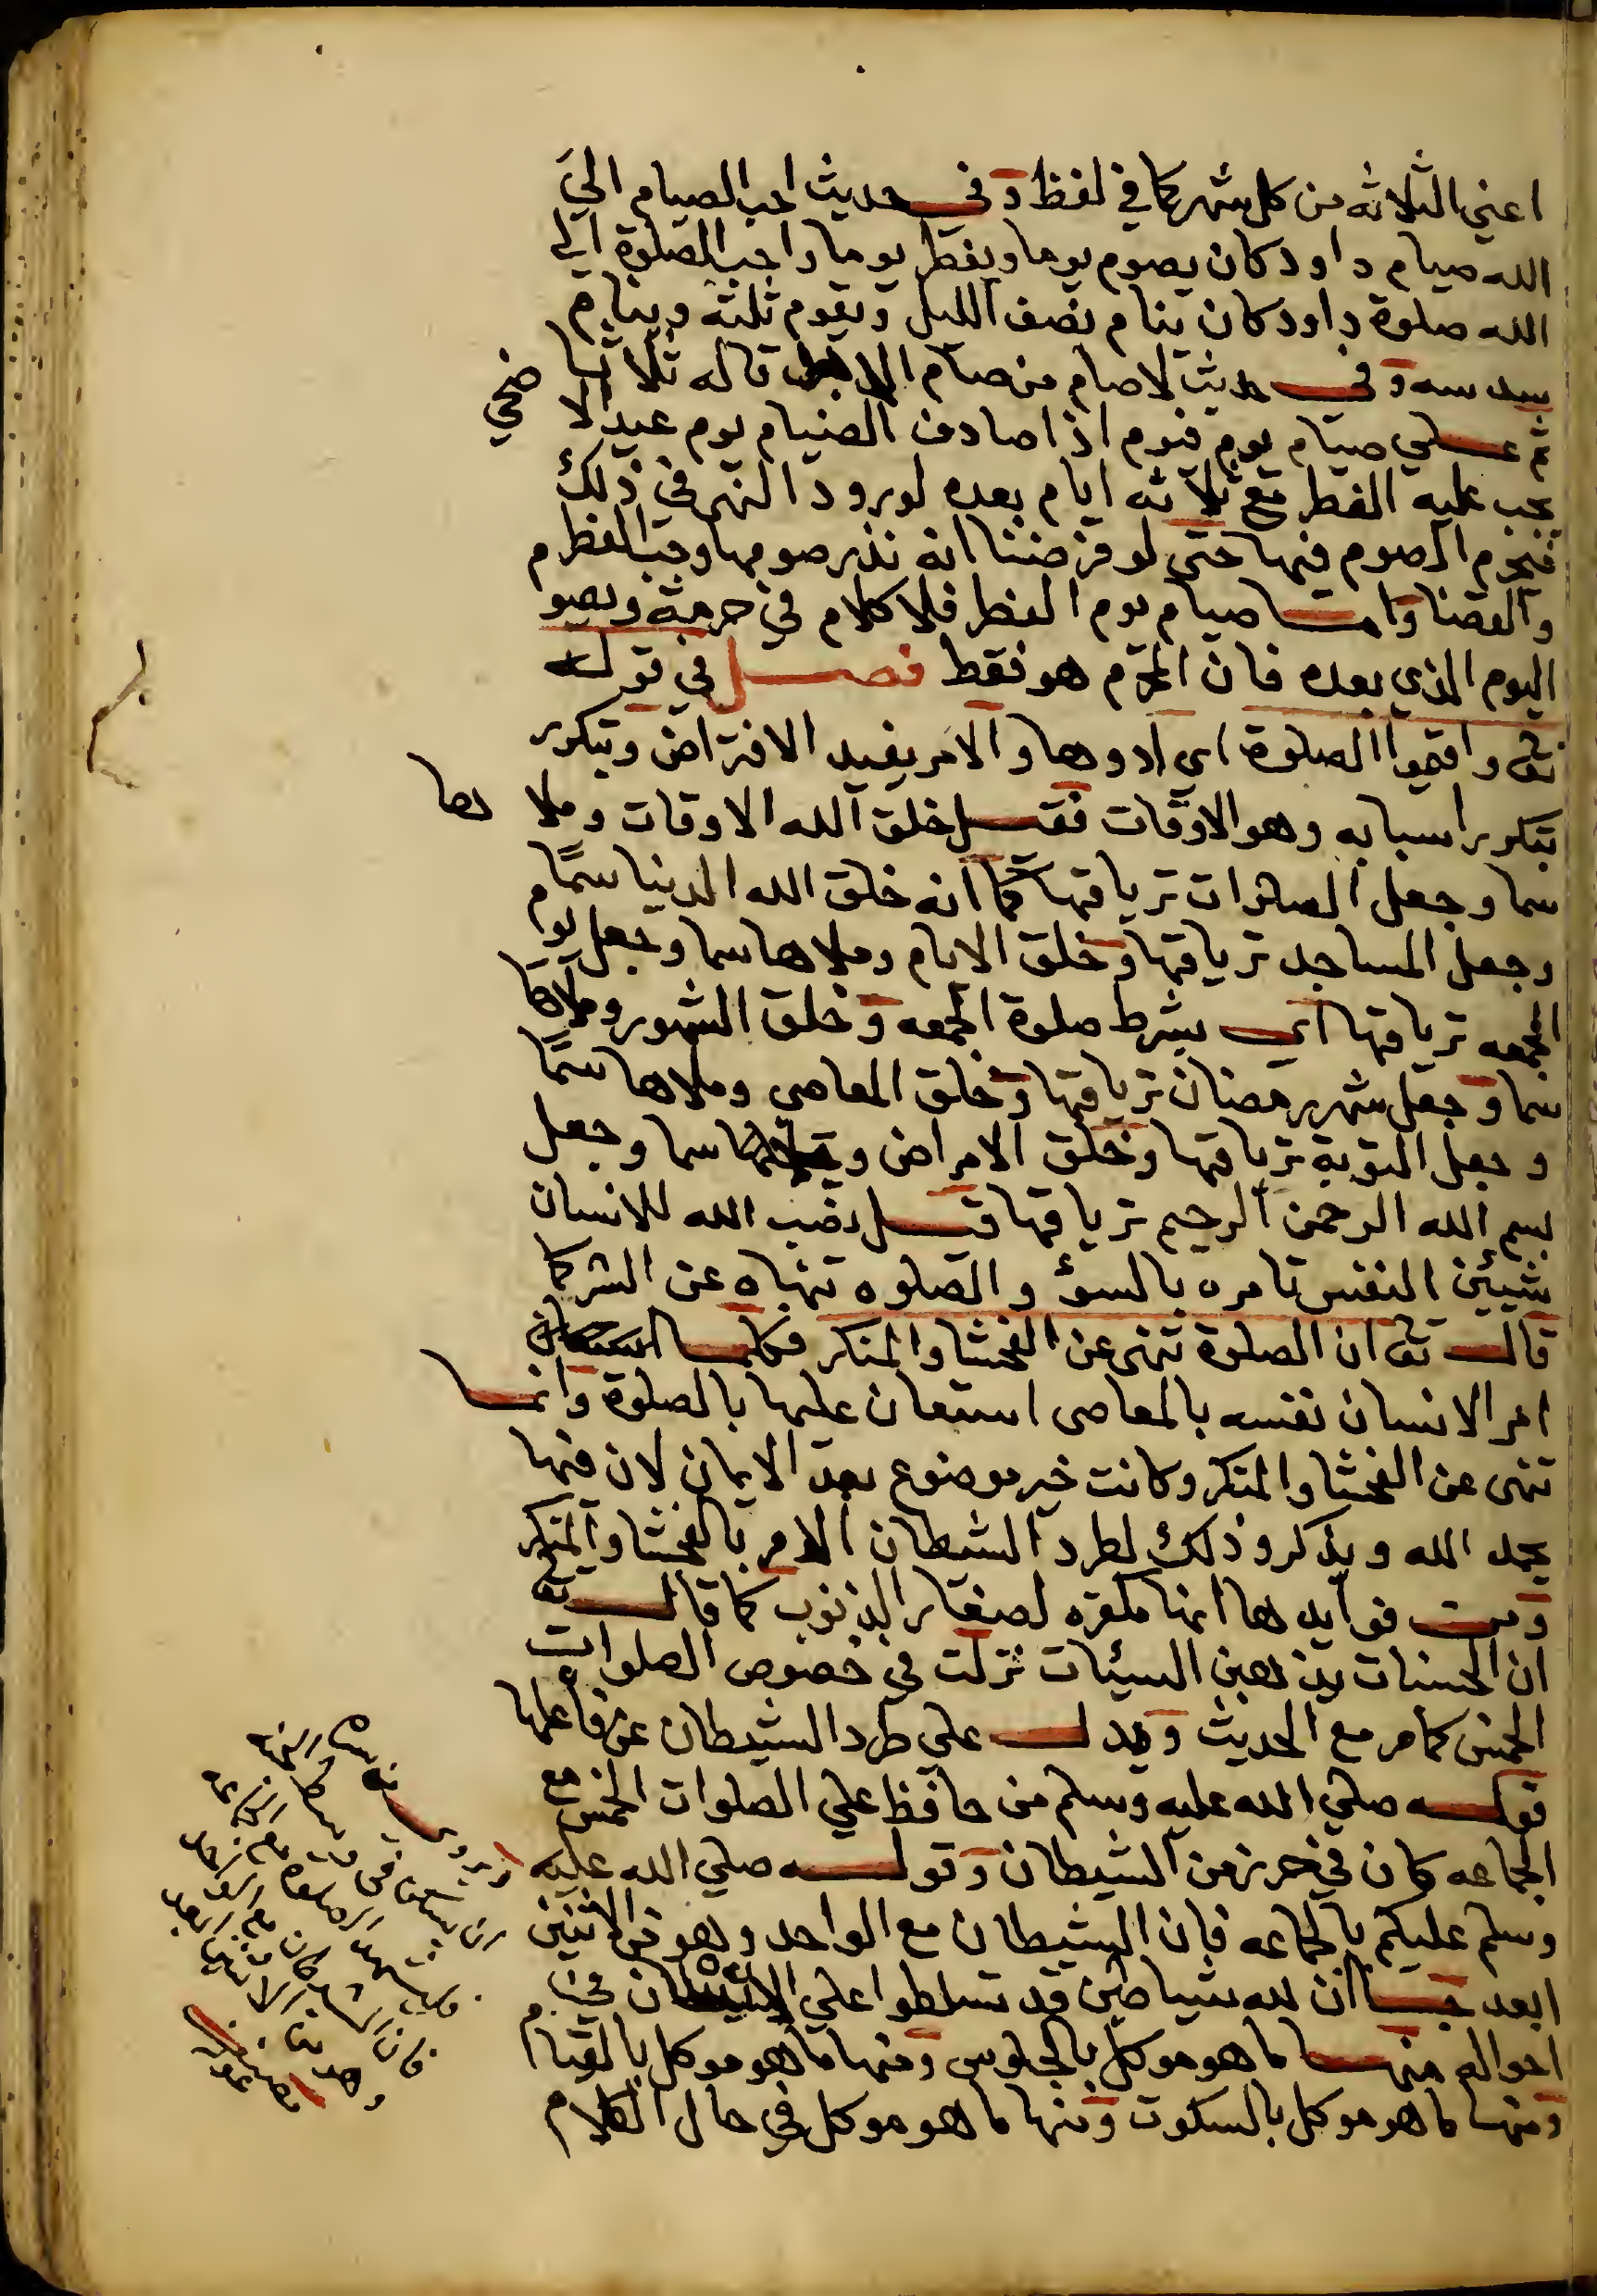 اعني الثلاثه من كل شهر كما في لفظ وفي حديث احب الصيام الي
الله صيام داود كان يصوم يوما ويفطر يوما واحب الصلوة الي
الله صلوة داود كان ينام نصف الليل ويقوم ثلثه وينام
سدسه وفي حديث لا صام من صام الابد قاله ثلاثا
ثم علي صيام يوم فيوم اذا صادف الصيام يوم عيد الا ضحي
يجب عليه الفطر مع ثلاثه ايام بعده لورود النهي في ذلك
فيحرم الصوم فيها حتي لو فرضنا انه نذر صومها وجب الفطر
والقضا واما صيام يوم الفطر فلا كلام في حرمته ويصوم
اليوم الذي بعده فان المحرم هو فقط فصل في قوله
تع واقيموا الصلوة اي ادوها والامر يفيد الافتراض وتتكرر
بتكرر اسبابه وهو الاوقات فقيل خلق الله الاوقات وملاها
سما وجعل الصلوات ترياقها كما انه خلق الله الدنيا سمًا
وجعل المساجد ترياقها وخلق الايام وملاها سما وجعل يوم
الجمعه ترياقها اي بشرط صلوة الجمعه وخلق الشهور وملاها
سما وجعل شهر رمضان ترياقها وخلق المعاصي وملاها سمًا
وجعل التوبة ترياقها وخلق الامراض وملاها سما وجعل
بسم الله الرحمن الرحيم ترياقها قيل نصب الله للانسان
شيئين النفس تامره بالسؤ والصلوه تنهاه عن الشر كما
قال تع ان الصلوة تنهي عن الفحشا والمنكر فكلما
امر الانسان نفسه بالمعاصي استعان عليها بالصلوة وانما
تنهي عن الفحشا والمنكر وكانت خير موضوع بعد الايمان لان فيها
يحمد الله ويذكر وذلك لطرد الشيطان الامر بالفحشا والمنكر
ومن فوايدها انها مكفره لصغاير الذنوب كما قال تع
ان الحسنات يذهبن السيئات نزلت في خصوص الصلوات
الخمس كما مر مع الحديث ويدل علي طرد الشيطان عن فاعلها
قوله صلي الله عليه وسلم من حافظ علي الصلوات الخمس مع
الجماعه كان في حرز من الشيطان وقوله صلي الله عليه
وسلم عليكم بالجماعه فان الشيطان مع الواحد وهو من الاثنين
ابعد ان لله شياطين قد تسلطوا علي الانسان في
احوالهم منها ما هو موكل بالجلوس ومنها ما هو موكل بالقيام
ومنها ما هو موكل بالسكوت ومنها ما هو موكل في حال الكلام